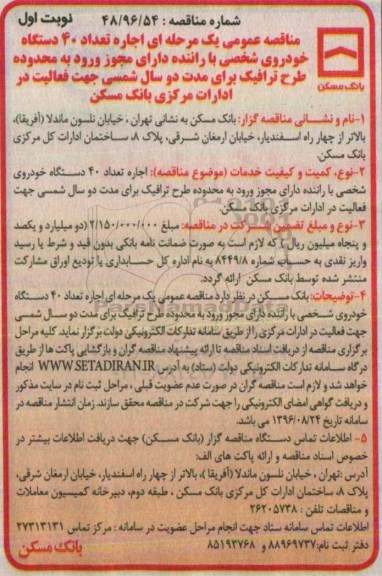 شماره مناقصه : ۴۸/۹۶/۵۴
نوبت اول
مناقصه عمومی یک مرحله ای اجاره تعداد ۴۰ دستگاه
خودروی شخصی با راننده دارای مجوز ورود به محدوده
طرح ترافیک برای مدت دو سال شمسی جهت فعالیت در
ادارات مرکزی بانک مسکن
بانک مسکن
۱-نام و نشانی مناقصه گزار: بانک مسکن به نشانی تهران ، خیابان نلسون ماندلا (آفریقا)،
بالاتر از چهار راه اسفندیار، خیابان ارمغان شرقی، پلاک ۸، ساختمان ادارات کل مرکزی
بانک مسکن.
۲-نوع، کمیت و کیفیت خدمات (موضوع مناقصه): اجاره تعداد ۴۰ دستگاه خودروی
شخصی با راننده دارای مجوز ورود به محدوده طرح ترافیک برای مدت دو سال شمسی جهت
فعالیت در ادارات مرکزی بانک مسکن.
۳-نوع و مبلغ تضمین شرکت در مناقصه: مبلغ ۲/۱۵۰/۰۰۰/۰۰۰ (دو میلیارد و یکصد
و پنجاه میلیون ریال) که لازم است به صورت ضمانت نامه بانکی بدون قید و شرط یا رسید
واریز نقدی به حساب شماره ۸۴۴۹/۸ به نام اداره کل حسابداری یا تودیع اوراق مشارکت
منتشر شده توسط بانک مسکن ارائه گردد.
۴-توضیحات: بانک مسکن در نظر دارد مناقصه عمومی یک مرحله ای اجاره تعداد ۴۰ دستگاه
خودروی شخصی با راننده دارای مجوز ورود به محدوده طرح ترافیک برای مدت دو سال شمسی
جهت فعالیت در ادارات مرکزی را از طریق سامانه تدارکات الکترونیکی دولت برگزار نماید. کلیه مراحل
برگزاری مناقصه از دریافت اسناد مناقصه تا ارائه پیشنهاد مناقصه گران و بازگشایی پاکت ها از طریق
درگاه سامانه تدارکات الکترونیکی دولت (ستاد) به آدرس WWW.SETADIRAN.IR انجام
خواهد شد و لازم است مناقصه گران در صورت عدم عضویت قبلی ، مراحل ثبت نام در سایت مذکور
و دریافت گواهی امضای الکترونیکی را جهت شرکت در مناقصه محقق سازند. زمان انتشار مناقصه در
سامانه تاریخ ۱۳۹۶/۰۸/۲۴ می باشد.
۵- اطلاعات تماس دستگاه مناقصه گزار (بانک مسکن) جهت دریافت اطلاعات بیشتر در
خصوص اسناد مناقصه و ارائه پاکت های الف:
آدرس :تهران ، خیابان نلسون ماندلا (آفریقا )، بالاتر از چهار راه اسفندیار، خیابان ارمغان شرقی،
پلاک ۸، ساختمان ادارات کل مرکزی بانک مسکن ، طبقه دوم، دبیرخانه کمیسیون معاملات
و مناقصات تلفن : ۲۶۲۰۵۷۳۸
اطلاعات تماس سامانه ستاد جهت انجام مراحل عضویت در سامانه : مرکز تماس ۲۷۳۱۳۱۳۱
دفتر ثبت نام:۸۸۹۶۹۷۳۷ و ۸۵۱۹۳۷۶۸
بانک مسکن